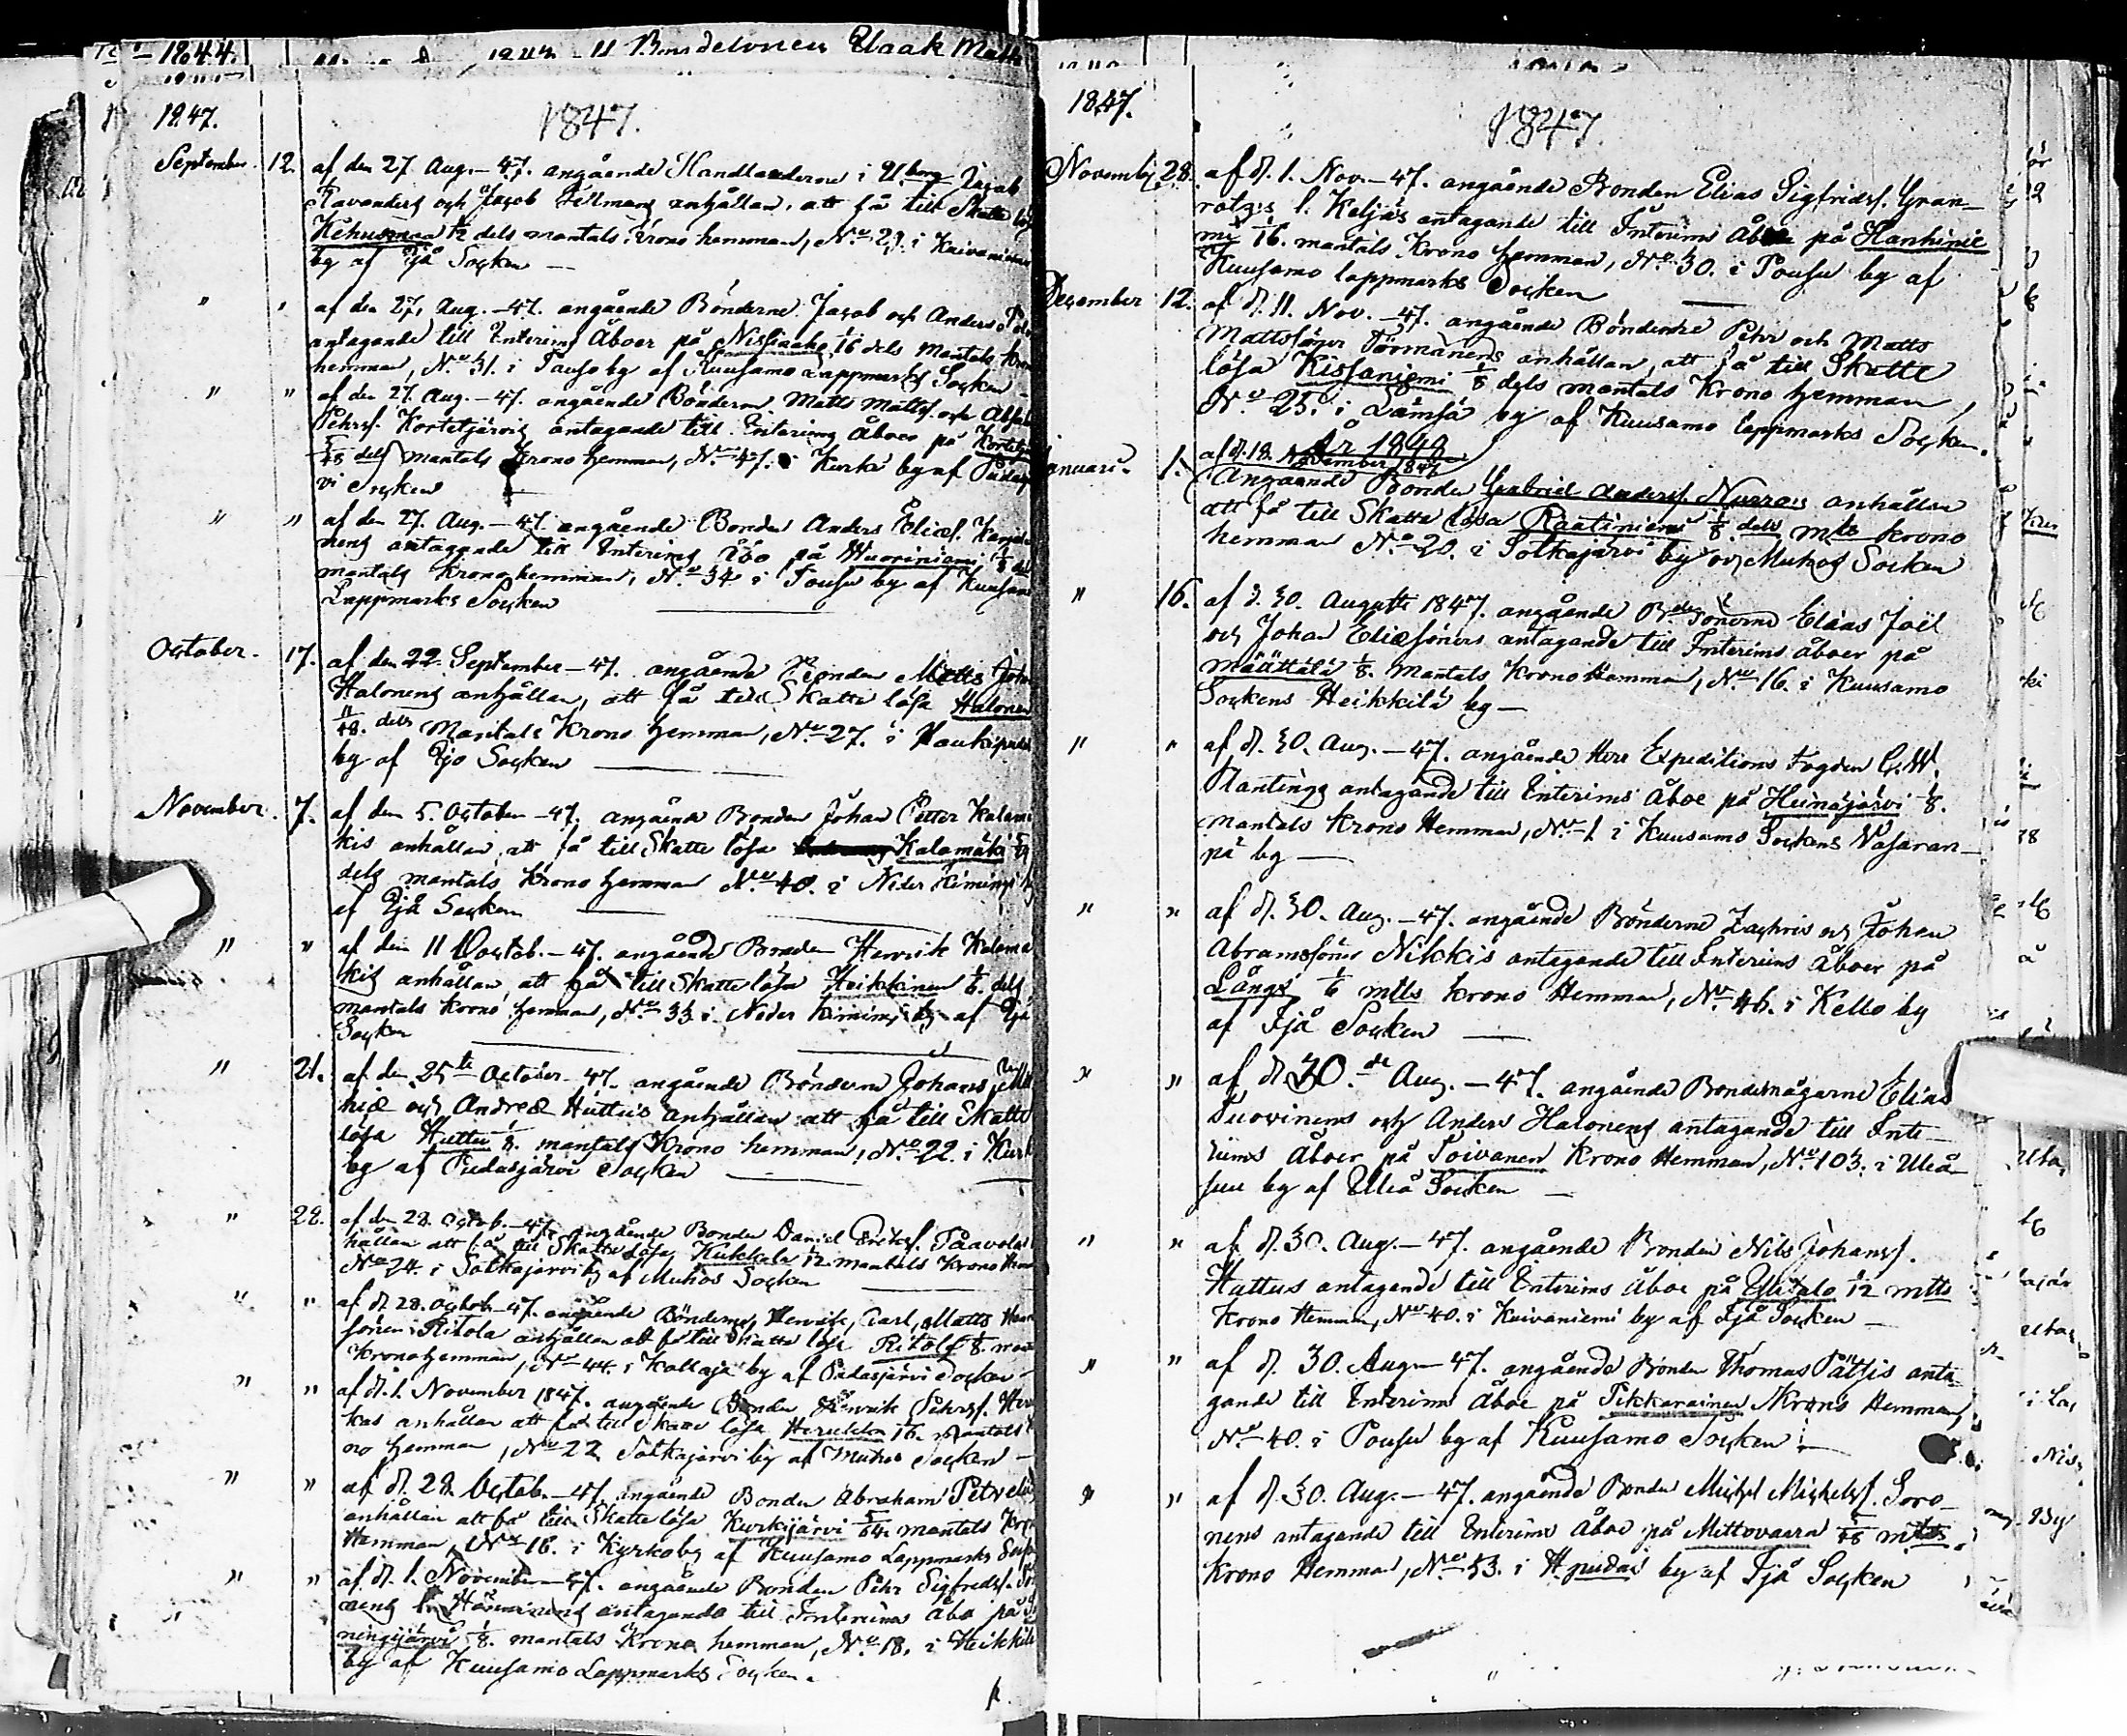 1844. Bondelonen Isaak Matts
1847.
1847.
September. 12. af den 27 Aug. – 47. angående Handlanderne i Ul.borg Jacob
Ravanders och Jacob Fellmans anhållan, att få till Skatte lös
Kehusmaa 1/12 dels mantals Krono hemman, No 29. i Kuivaniemi
by af Ijå Socken —
" " af den 27. Aug. – 47. angående Bönderne Jacob och Anders
antagande till Interims Åboer på Nissinaho 1/16 dels Mantals Kro
hemman, No 31. i Tauso by af Kuusamo Lappmarks Socken –
" " af den 27. Aug. – 47. angående Bönderne Matts Mattss. och
Pehrss. Kortetjärvis antagande till Interims Åboer på Kortetj
5/48 dels mantals Krono hemman, No 47. i Kurki by af Pudasj
vi Socken
" " af den 27. Aug. – 47. angående Bonden Anders Eliæs.
nens antagande till Interims Åbo på Wuoriniemi 1/8 del
mantals Krono hemman, No 34 i Pousu by af Kuusam
Lappmarks Socken
October. 17. af den 22. September – 47. angående Bonden Matts Joh
Halonens anhållan, att få till Skatte lösa Halonen
11/48. dels Mantals Krono hemman, No 27. i Haukipud
by af Ijo Socken
November. 7. af den 5. October – 47. angående Bonden Johan Petter Kalam
kis anhållan, att få till Skatte lösa Kalamäki
dels mantals Krono hemman No 40. i Neder Kiimingi by
af Ijå Socken
" " af den 11 Octob. – 47. angående Bonden Henrik Kalama
kis anhållan, att få till Skatte lösa Heikkinen 1/6. dels
mantals Krono hemman, No 33 i Neder Kiimingi by af Ijå
Socken
" 21. af den 25te October – 47. angående Bönderne Johans,
hiæ och Andreæ Huttus anhållan att få till Skatte
lösa Huttu 1/8. mantals Krono hemman, No 22. i Kurk
by af Pudasjärvi Socken
" 28. af den 28. Octob. – 47. angående Bonden Daniel Erikss. Paavola
hållan att få till Skatte lösa Kukkola 1/12 mantals Krono
No 24. i Sotkajärvi by af Muhos Socken
" " af d. 28. Octob. – 47. angående Bönderne, Henrik, Carl, Matts
söner Ritola anhållan att få till Skatte lösa Ritola 1/8. man
Krono hemman, No 44. i Kollaja by af Pudasjärvi Socken –
" " af d. 1. November 1847. angående Bonden Henrik Pehrss. Her
kas anhållan att få till Skatte lösa Herukka 1/16. Mantals
no hemman, No 22 Sotkajärvi by af Muhos Socken –
" " af d. 28. Octob. – 47. angående Bonden Abraham Petreli
anhållan att få till Skatte lösa Kurkijärvi 5/64. mantals Kro
Hemman, No 16. i Kyrkoby af Kuusamo Lappmarks Sock
" " af d. 1. November – 47. angående Bonden Pehr Sigfredss.
nens l. Hänninens antagande till Interims Åbo på
ningijärvi 1/8. mantals Krono hemman, No 18. i Heikkilä
by af Kuusamo Lappmarks Socken.
1847.
1847.
Novemb. 28. af d. 1. Nov. – 47. angående Bonden Elias Sigfridss. Gran–
rotzs l. Keljäs antagande till Interims Åbo på Hanhinie
mi 1/16. mantals Krono hemman, No 30. i Pousu by af
Kuusamo lappmarks Socken
December 12. af d. 11. Nov. – 47. angående Bönderne Pehr och Matts
Mattssöner Törmänens anhållan, att få till Skatte
lösa Kissaniemi 1/8 dels mantals Krono hemman,
No 25. i Lämsä by af Kuusamo lappmarks Socken.
År 1848
Januari. 1. af d. 18. November 1847
Angaende Bonden Gabriel Anderss. Nurros anhållan
att få till Skatte lösa Raatiniemi 1/8. dels mtls krono
hemman No 20. i Sotkajärvi by och Muhos Socken
" 16. af d. 30. Augusti 1847. angående Bde Sönerne Elias Joël
och Johan Eliæsöners antagande till Interims åboer på
Määttälä 1/8. Mantals Krono Hemman, No 16. i Kuusamo
Sockens Heikkilä by —
" " af d. 30. Aug. – 47. angående Herr Expeditions Fogden C. W.
Plantings antagande till Interims Åboe på Heinäjärvi 1/8.
mantals Krono Hemman, No 1 i Kuusamo Sockens Vasaran–
pä by —
" " af d. 30. Aug. – 47. angående Bönderne Zachris och Johan
Abramssöner Nikkis antagande till Interims Åboer på
Långs 1/6 mtls krono Hemman, No 46. i Kello by
af Ijå Socken —
" " af d. 30.de Aug. – 47. angående Bondemågarne Elias
Tuovinens och Anders Halonens antagande till Inte–
rims Åboer på Toivanen Krono Hemman, No 103. i Uleå
suu by af Uleå Socken —
" " af d. 30. Aug. – 47. angående Bonden Nils Johanss.
Huttus antagende till Interims Åboe på Ylitalo 1/12 mtls
Krono Hemman, No 40. i Kuivaniemi by af Ijå Socken —
" " af d. 30. Aug – 47. angående Bonden Thomas Pätsis anta–
gande till Interims Åboe på Tikkarainen Krono Hemman,
No 40. i Pousu by af Kuusamo Socken —
" " af d. 30. Aug. – 47. angående Bonden Michel Michelss. Soro–
nens antagande till Interims Åboe på Mittovaara 1/48 mtls.
Krono Hemman, No 53. i Hpudas by af Ijå Socken